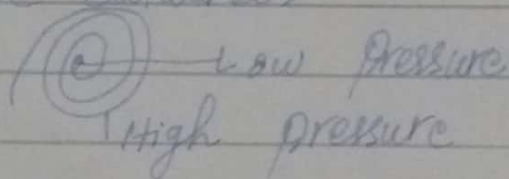 Low pressure
High pressure